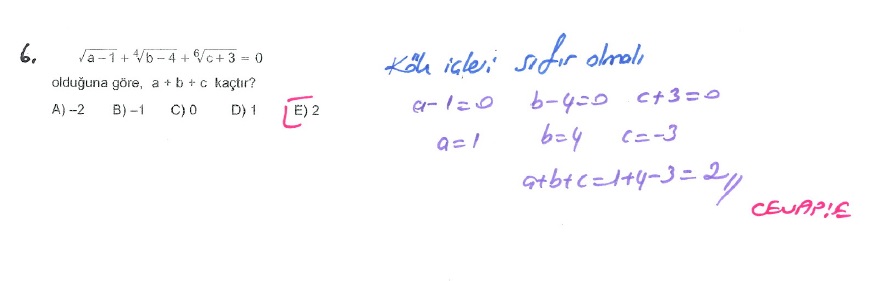 6. √a-1 + ⁴√b-4 + ⁶√c+3 = 0
olduğuna göre, a + b + c kaçtır?
A) -2 B) -1 C) 0 D) 1 E) 2
Kök içleri sıfır olmalı
a-1=0 b-4=0 c+3=0
a=1 b=4 c=-3
a+b+c=1+4-3=2//
CEVAP:E